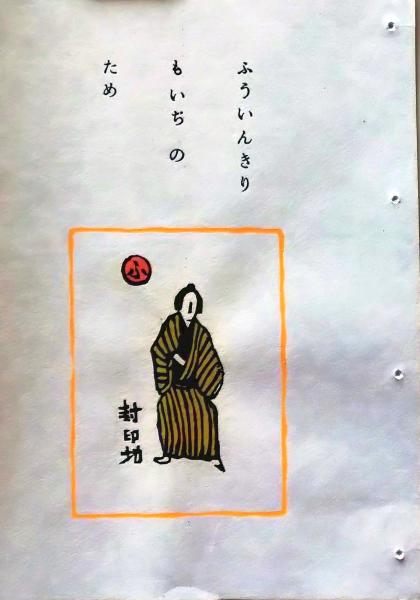 ふういんきり
もいぢ の
ため
ふ
封印切